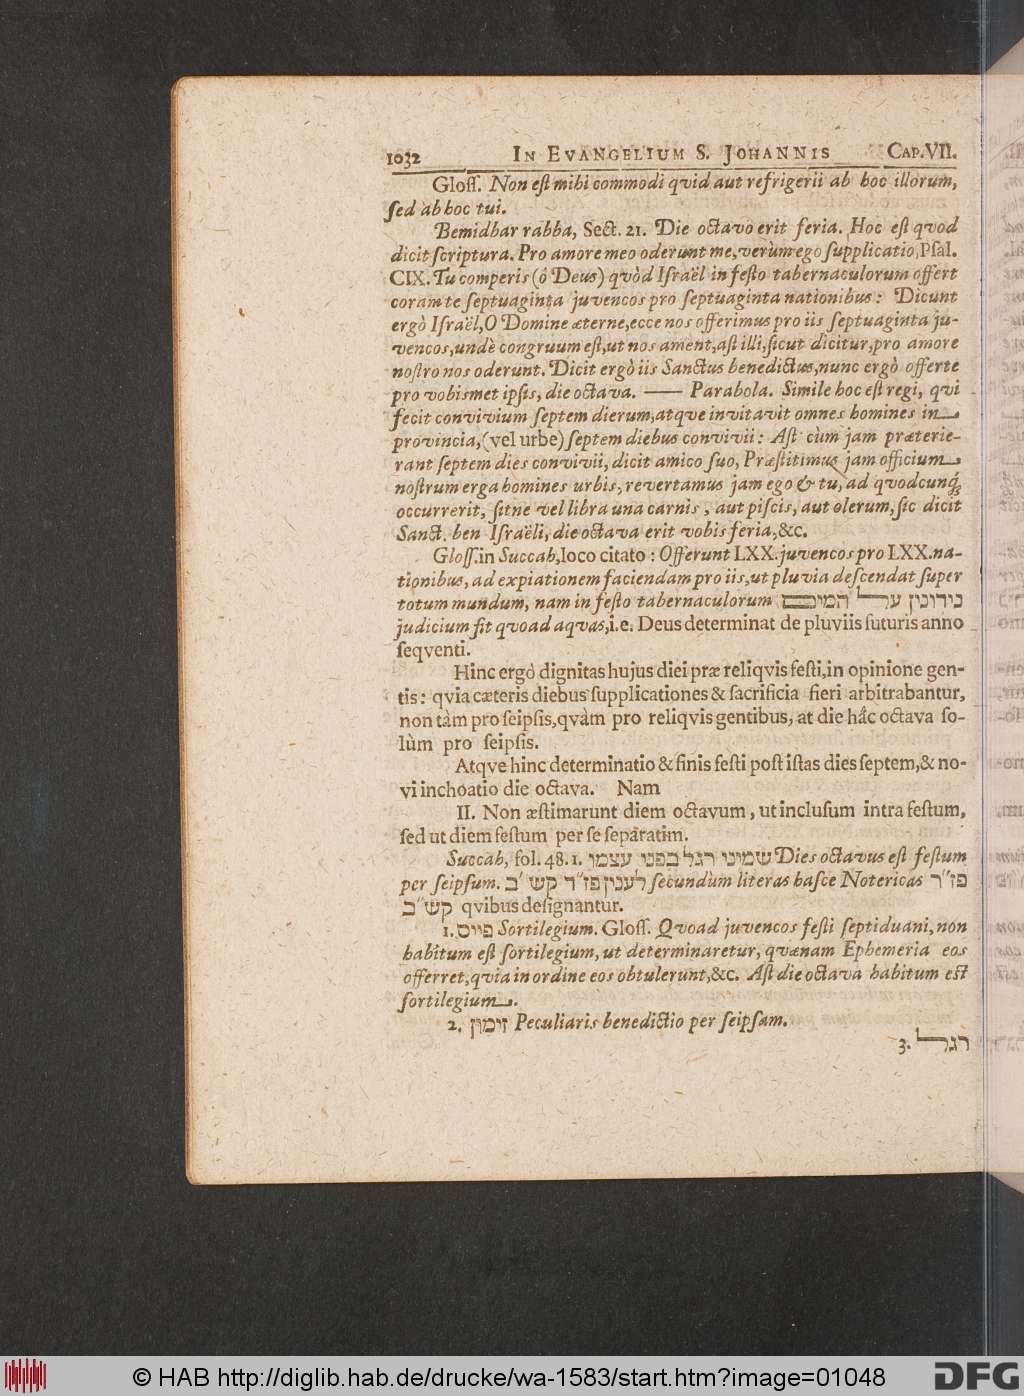 1032 IN EVANGELIUM S. JOHANNIS CAP. VII.
Gloſſ. Non eſt mihi commodi qvid aut refrigerii ab hoc illorum,
ſed ab hoc tui.
Bemidbar rabba, Sect. 21. Die octavo erit feria. Hoc eſt qvod
dicit ſcriptura. Pro amore meo oderunt me, verùm ego ſupplicatio, Pſal.
CIX. Tu comperis (ô Deus) qvòd Iſraël in feſto tabernaculorum offert
coram te ſeptuaginta juvencos pro ſeptuaginta nationibus: Dicunt
ergò Iſraël, O Domine æterne, ecce nos offerimus pro iis ſeptuaginta ju-
vencos, undè congruum eſt, ut nos ament, aſt illi, ſicut dicitur, pro amore
noſtro nos oderunt. Dicit ergò iis Sanctus benedictus, nunc ergò offerte
pro vobismet ipſis, die octava. —— Parabola. Simile hoc eſt regi, qvi
fecit convivium ſeptem dierum, atqve invitavit omnes homines in
provincia, (vel urbe) ſeptem diebus convivii: Aſt cùm jam præterie-
rant ſeptem dies convivii, dicit amico ſuo, Præſtitimus jam officium
noſtrum erga homines urbis, revertamus jam ego & tu, ad qvodcunq́;
occurrerit, ſitne vel libra una carnis, aut piſcis, aut olerum, ſic dicit
Sanct. ben Iſraëli, die octava erit vobis feria, &c.
Gloſſ. in Succah, loco citato: Offerunt LXX. juvencos pro LXX. na-
tionibus, ad expiationem faciendam pro iis, ut pluvia deſcendat ſuper
totum mundum, nam in feſto tabernaculorum נידונין על המים
judicium fit qvoad aqvas, i.e. Deus determinat de pluviis futuris anno
ſeqventi.
Hinc ergò dignitas hujus diei præ reliqvis feſti, in opinione gen-
tis: qvia cæteris diebus ſupplicationes & ſacrificia fieri arbitrabantur,
non tàm pro ſeipſis, qvàm pro reliqvis gentibus, at die hâc octava ſo-
lùm pro ſeipſis.
Atqve hinc determinatio & finis feſti poſt iſtas dies ſeptem, & no-
vi inchoatio die octava. Nam
II. Non æſtimarunt diem octavum, ut incluſum intra feſtum,
ſed ut diem feſtum per ſe ſeparatim.
Succah, fol. 48. 1. שמיני רגל בפני עצמו Dies octavus eſt feſtum
per ſeipſum. לענין פז״ר קש׳ב ſecundùm literas haſce Notericas פז״ר
קש״ב qvibus deſignantur.
1. פייס Sortilegium. Gloſſ. Qvoad juvencos feſti ſeptiduani, non
habitum eſt ſortilegium, ut determinaretur, qvænam Ephemeria eos
offerret, qvia in ordine eos obtulerunt, &c. Aſt die octava habitum eſt
ſortilegium.
2. זימון Peculiaris benedictio per ſeipſam.
3. רגל
© HAB http://diglib.hab.de/drucke/wa-1583/start.htm?image=01048
DFG